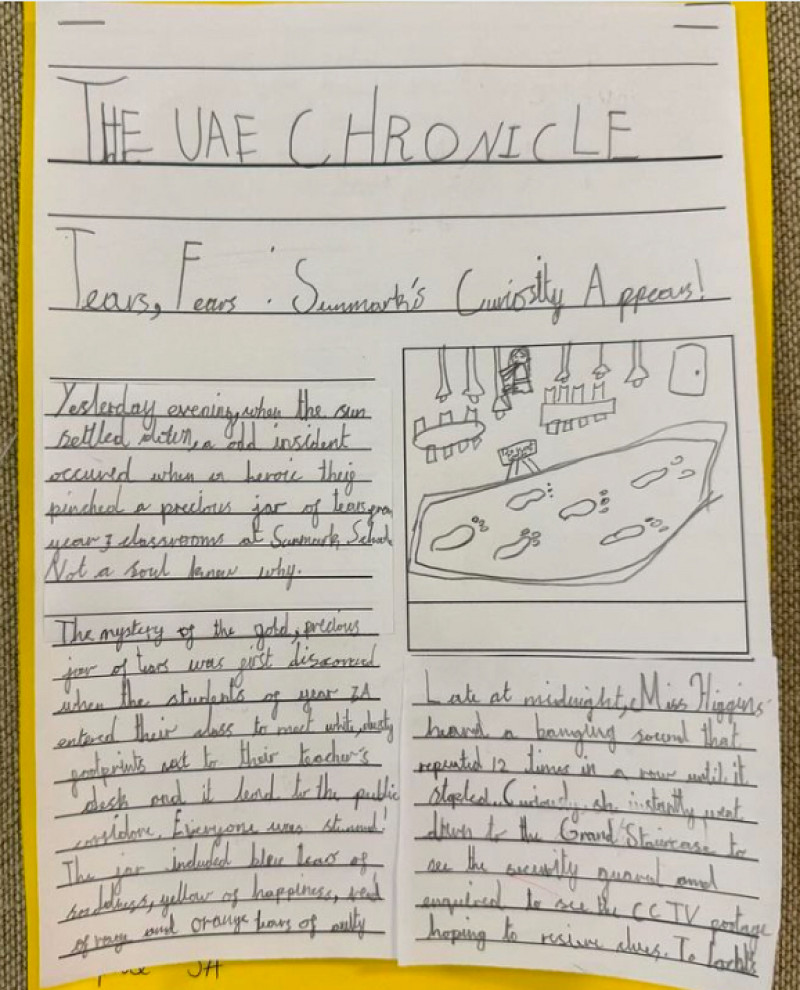 THE UAE CHRONICLE
Tears, Fears : Sunmark's Curiostly Appears!
Yesterday evening, when the sun
settled down, a odd insident
occured when a heroic theif
pinched a precious jar of tears from
year 3 classrooms at Sunmark School.
Not a soul knew why.
The mystery of the gold, precious
jar of tears was first discovered
when the students of year 3A
entered their class to meet white, dusty
footprints next to their teacher's
desk and it lead to the public
Everyone was stunned!
The jar included blue tears of
saddness, yellow of happiness, red
of rage and orange tears of
Late at midnight, Miss Higgins
heard a banging sound that
repeated 12 times in a row until it
stopped. Curiously, she instantly went
down to the Grand Staircase to
see the security guard and
enquired to see the CCTV footage
hoping to resive clues. To
3A